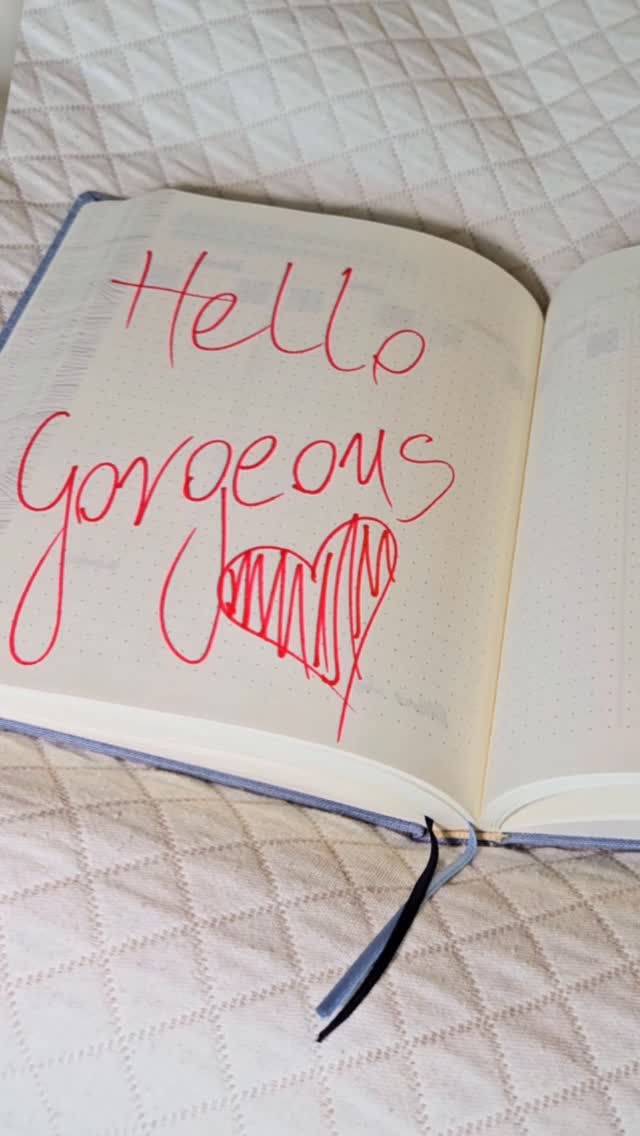 Hello
Gorgeous